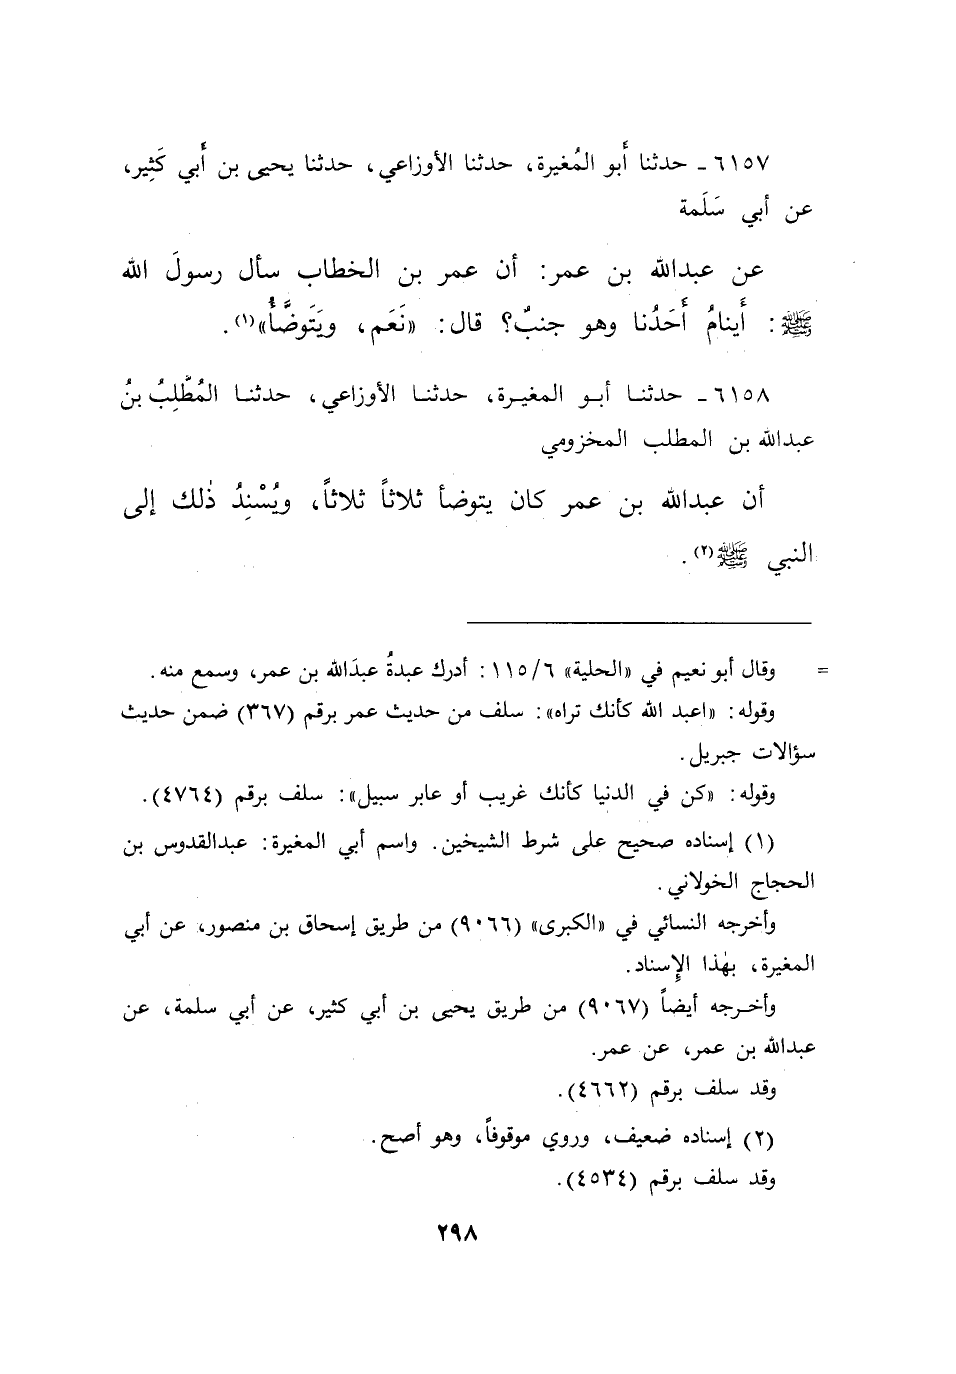 ٦١٥٧ ـ حدثنا أَبو المُغيرة، حدثنا الأوزاعي، حدثنا يحيى بن أَبي كَثِير،
عن أبي سَلَمة
عن عبدالله بن عمر: أن عمر بن الخطاب سأل رسولَ الله
ﷺ: أَينامُ أَحَدُنا وهو جنبٌ؟ قال: «نَعَم، ويَتَوضَّأُ»(١).
٦١٥٨ ـ حدثنا أبو المغيرة، حدثنا الأوزاعي، حدثنا المُطَّلِبُ بنُ
عبدالله بن المطلب المخزومي
أن عبدالله بن عمر كان يتوضأ ثلاثاً ثلاثاً، ويُسْنِدُ ذٰلك إلى
النبي ﷺ(٢).
= وقال أبو نعيم في «الحلية» ١١٥/٦: أدرك عبدةُ عبدَالله بن عمر، وسمع منه.
وقوله: «اعبد الله كأنك تراه»: سلف من حديث عمر برقم (٣٦٧) ضمن حديث
سؤالات جبريل.
وقوله: «كن في الدنيا كأنك غريب أو عابر سبيل»: سلف برقم (٤٧٦٤).
(١) إسناده صحيح على شرط الشيخين. واسم أبي المغيرة: عبدالقدوس بن
الحجاج الخولاني.
وأخرجه النسائي في «الكبرى» (٩٠٦٦) من طريق إسحاق بن منصور، عن أبي
المغيرة، بهٰذا الإِسناد.
وأخرجه أيضاً (٩٠٦٧) من طريق يحيى بن أبي كثير، عن أبي سلمة، عن
عبدالله بن عمر، عن عمر.
وقد سلف برقم (٤٦٦٢).
(٢) إسناده ضعيف، وروي موقوفاً، وهو أصح.
وقد سلف برقم (٤٥٣٤).
٢٩٨